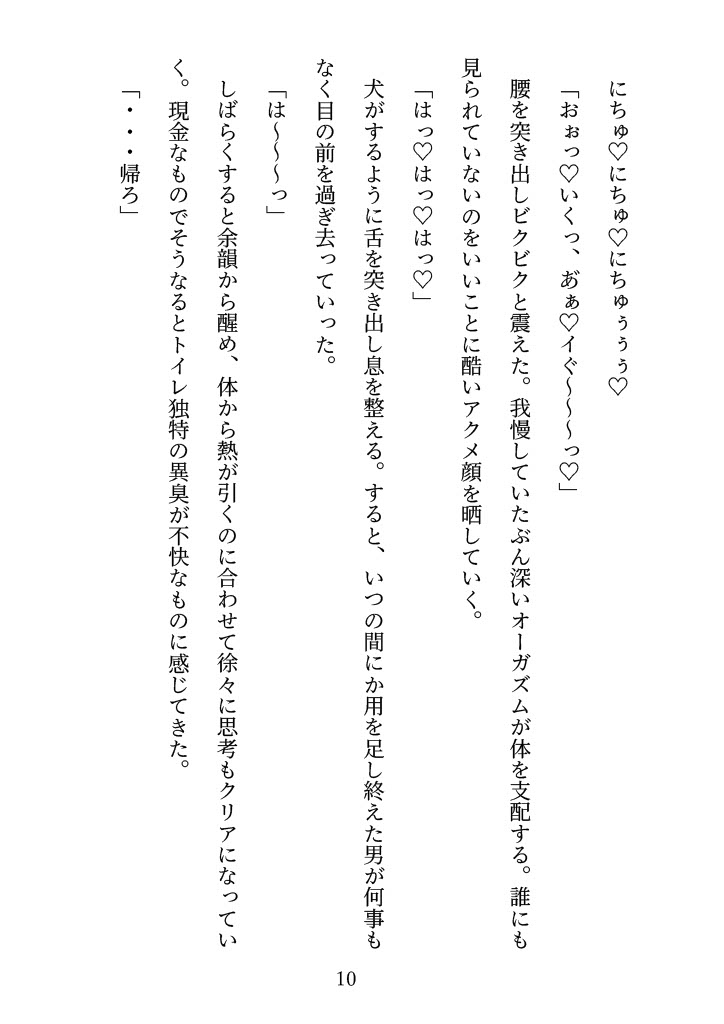 にちゅ♡にちゅ♡にちゅぅぅぅ♡
「おぉっ♡いくっ、あ゙ぁ♡イぐ～～～っ♡」
腰を突き出しビクビクと震えた。我慢していたぶん深いオーガズムが体を支配する。誰にも
見られていないのをいいことに酷いアクメ顔を晒していく。
「はっ♡はっ♡はっ♡」
犬がするように舌を突き出し息を整える。すると、いつの間にか用を足し終えた男が何事も
なく目の前を過ぎ去っていった。
「は～～～っ」
しばらくすると余韻から醒め、体から熱が引くのに合わせて徐々に思考もクリアになってい
く。現金なものでそうなるとトイレ独特の異臭が不快なものに感じてきた。
「・・・帰ろ」
10